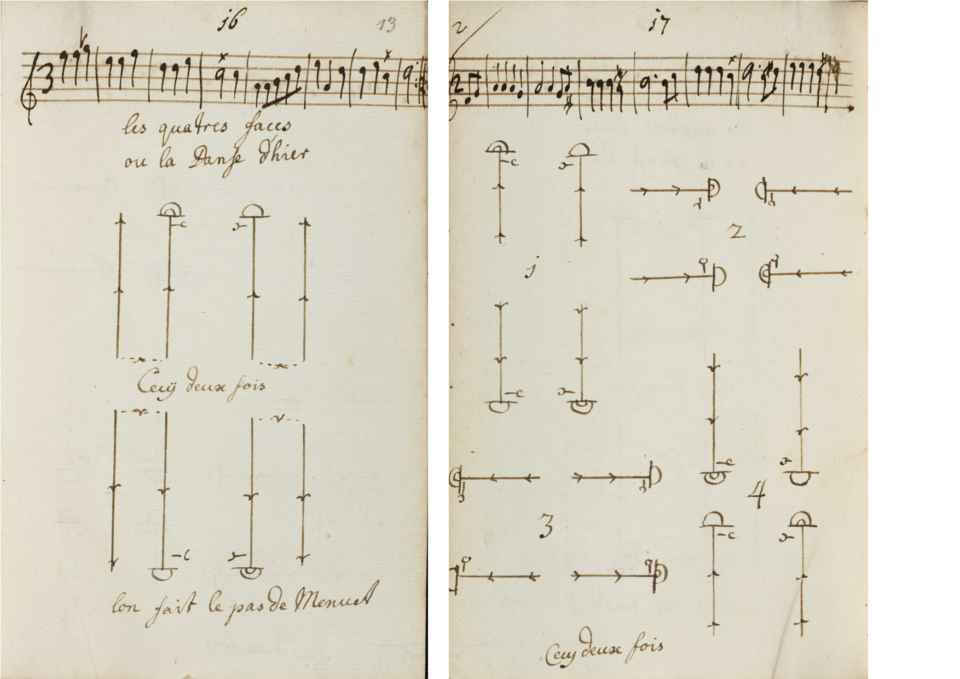 16
13
3
les quatres faces
ou la Danse d'hier
Cecy deux fois
lon fait le pas de Menuet
17
2
2
1
2
3
4
Cecy deux fois